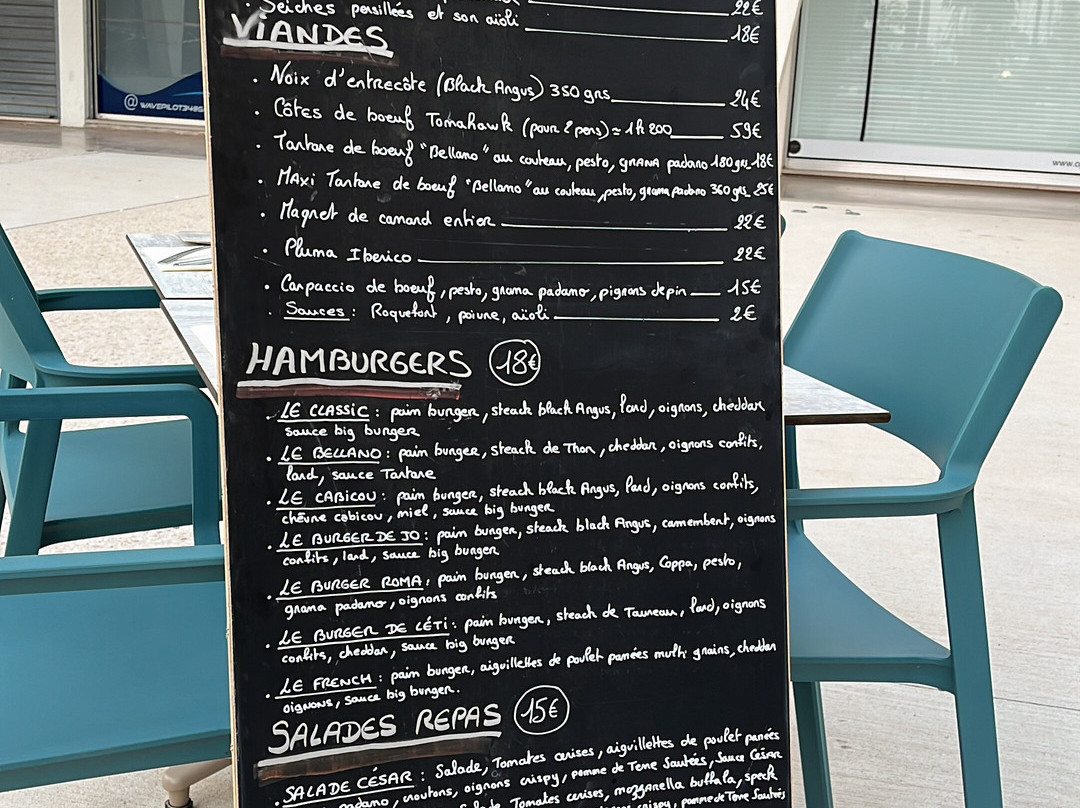 22€
. Seiches persillées et son aïoli 18€
VIANDES
. Noix d'entrecôte (Black Angus) 350 grs 24€
. Côtes de boeuf Tomahawk (pour 2 pers) ≈ 1k200 59€
. Tartare de boeuf "Bellano" au couteau, pesto, grana padano 180grs 18€
. Maxi Tartare de boeuf "Bellano" au couteau, pesto, grana padano 360 grs 25€
. Magret de canard entier 22€
. Pluma Iberico 22€
. Carpaccio de boeuf, pesto, grana padano, pignons de pin 15€
. Sauces : Roquefort, poivre, aïoli 2€
HAMBURGERS 18€
. LE CLASSIC : pain burger, steack black Angus, lard, oignons, cheddar
sauce big burger
. LE BELLANO : pain burger, steack de Thon, cheddar, oignons confits,
lard, sauce Tartare
. LE CABICOU : pain burger, steack black Angus, lard, oignons confits,
chèvre cabicou, miel, sauce big burger
. LE BURGER DE JO : pain burger, steack black Angus, camembert, oignons
confits, lard, sauce big burger
. LE BURGER ROMA : pain burger, steack black Angus, Coppa, pesto,
grana padano, oignons confits
. LE BURGER DE LÉTI : pain burger, steack de Taureau, lard, oignons
confits, cheddar, sauce big burger
. LE FRENCH : pain burger, aiguillettes de poulet panées multi grains, cheddar
oignons, sauce big burger.
SALADES REPAS 15€
. SALADE CÉSAR : Salade, Tomates cerises, aiguillettes de poulet panées
padano, croutons, oignons crispy, pomme de Terre Sautées, Sauce César
Tomates cerises, mozzarella buffala, speck
crispy, pomme de Terre Sautées
@WAVEPILOT34
www.